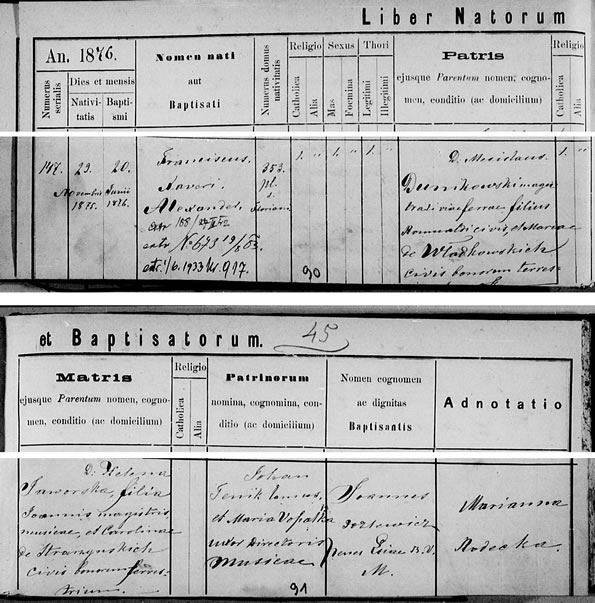 Liber Natorum
An. 1876.
Numerus serialis
Dies et mensis
Nativitatis
Baptismi
Nomen nati
aut
Baptisati
Numerus domus nativitatis
Religio
Catholica
Alia
Sexus
Mas
Foemina
Thori
Legitimi
Illegitimi
Patris
ejusque Parentum nomen, cogno-
men, conditio (ac domicilium)
Religio
Catholica
Alia
147.
23.
Novembris
1875.
20.
Junii
1876.
Franciscus.
Xaveri.
Alexander.
extr 188/
extr No 673 19/
extr. 1/6. 1933 Nr. 917.
353
pl.
s.
Floriani
1. " 1. " 1. "
D.
Dunikowski
filius
Romualdi civis et Mariae
de Wladkowskich
civis bonorum terres-
1. "
90
et Baptisatorum.
45
Matris
ejusque Parentum nomen, cogno-
men, conditio (ac domicilium)
Religio
Catholica
Alia
Patrinorum
nomina, cognomina, con-
ditio (ac domicilium)
Nomen cognomen
ac dignitas
Baptisantis
Adnotatio
D. Helena
Jaworska filia
Joannis magistri
musicae, et Carolinae
de
civis bonorum terres-
trium.
Johan
et Maria Vopalka
uxor Directoris
Musicae
Joannes
B. V.
M.
Marianna
91